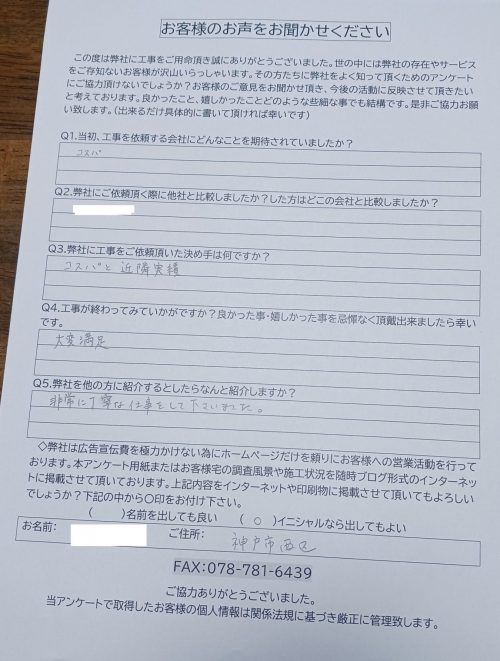 お客様のお声をお聞かせください
この度は弊社に工事をご用命頂き誠にありがとうございました。世の中には弊社の存在やサービス
をご存知ないお客様が沢山いらっしゃいます。その方たちに弊社をよく知って頂くためのアンケート
にご協力頂けないでしょうか？お客様のご意見をお聞かせ頂き、今後の活動に反映させて頂きたい
と考えております。良かったこと、嬉しかったことどのような些細な事でも結構です。是非ご協力お願
い致します。（出来るだけ具体的に書いて頂ければ幸いです）
Q1.当初、工事を依頼する会社にどんなことを期待されていましたか？
コスパ
Q2.弊社にご依頼頂く際に他社と比較しましたか？した方はどこの会社と比較しましたか？
Q3.弊社に工事をご依頼頂いた決め手は何ですか？
コスパと近隣実績
Q4.工事が終わってみていかがですか？良かった事・嬉しかった事を忌憚なく頂戴出来ましたら幸い
です。
大変満足
Q5.弊社を他の方に紹介するとしたらなんと紹介しますか？
非常に丁寧な仕事をして下さいました。
◇弊社は広告宣伝費を極力かけない為にホームページだけを頼りにお客様への営業活動を行って
おります。本アンケート用紙またはお客様宅の調査風景や施工状況を随時ブログ形式のインターネッ
トに掲載させて頂いております。上記内容をインターネットや印刷物に掲載させて頂いてもよろしい
でしょうか？下記の中から〇印をお付け下さい。
（　）名前を出しても良い　（ ○ ）イニシャルなら出してもよい
お名前：　ご住所：　神戸市西区
FAX:078-781-6439
ご協力ありがとうございました。
当アンケートで取得したお客様の個人情報は関係法規に基づき厳正に管理致します。